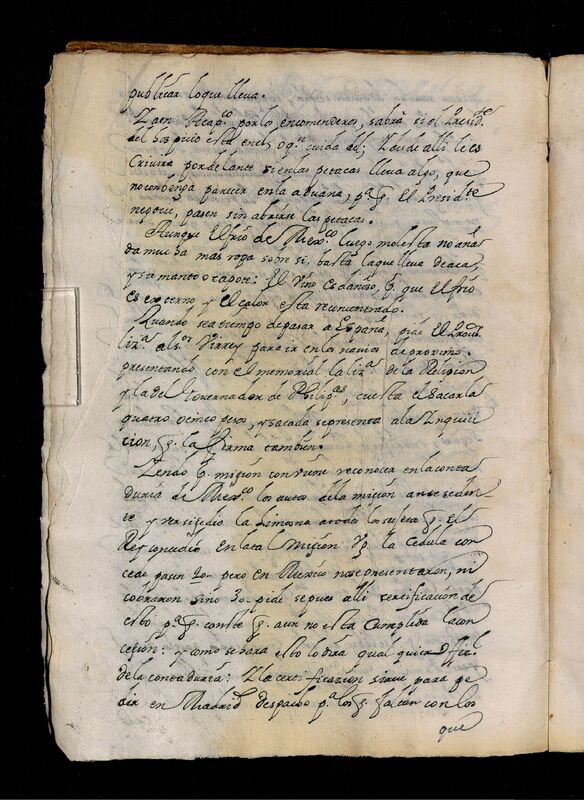 publicar lo que lleva.
Ya en Acap.co por los encomenderos, sabra si el Presid.te
del hospicio esta en el, o q.n cuida del; Y desde alli le es
crivira por delante si en las petacas lleva algo, que
no conbenga parecer en la aduana, p.a q. el Presid.te
negocie, pasen sin abrirse las petacas.
Aunque el frio de Mex.co luego molesta no aña
da mucha mas ropa sobre si, basta la que lleva de aca
y su manto o capote: El vino es dañoso, p. que el frio
es externo y el calor esta reconcentrado.
Quando sea tiempo de pasar a España, pide el Procu.
liz.a al s.or Virrey para ir en los navios de proximo.
presentando con el memorial la liz.a de la Religion
y la del Governador de Philip.as, cuesta el sacarla
quatro o cinco pesos, y sacada se presenta a la Inquici
cion, q. la firma tambien.
Yendo p. mision conviene reconocer en la conta
duria de Mex.co los autos de la mision antecedén
te y ver si se dio la limosna a todos los sujetos q. el
Rey concedió en la tal Mision V.g. la Cedula con
cede pasen 20. pero en Mexico no se presentaron, ni
cobraron sino 30. pide se pues alli certificacion de
esto p.a q. conste q. aun no esta cumplida la con
cesion: y como se hara esto lo dira qualquier offi.l
de la contaduria: Y la certificazion sirve para pe
dir en Madrid despacho p.a los q. faltan con los
que